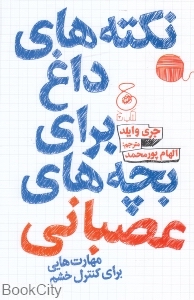 نکته‌های
داغ
برای
بچه‌های
عصبانی
جری وایلد
مترجم:
الهام پورمحمد
مهارت‌هایی
برای کنترل خشم
BookCity